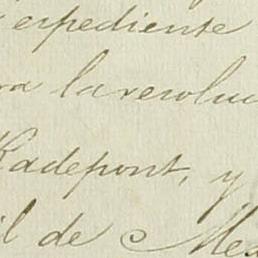 expediente
ra la revoluc
Radepont, y
il de Mex